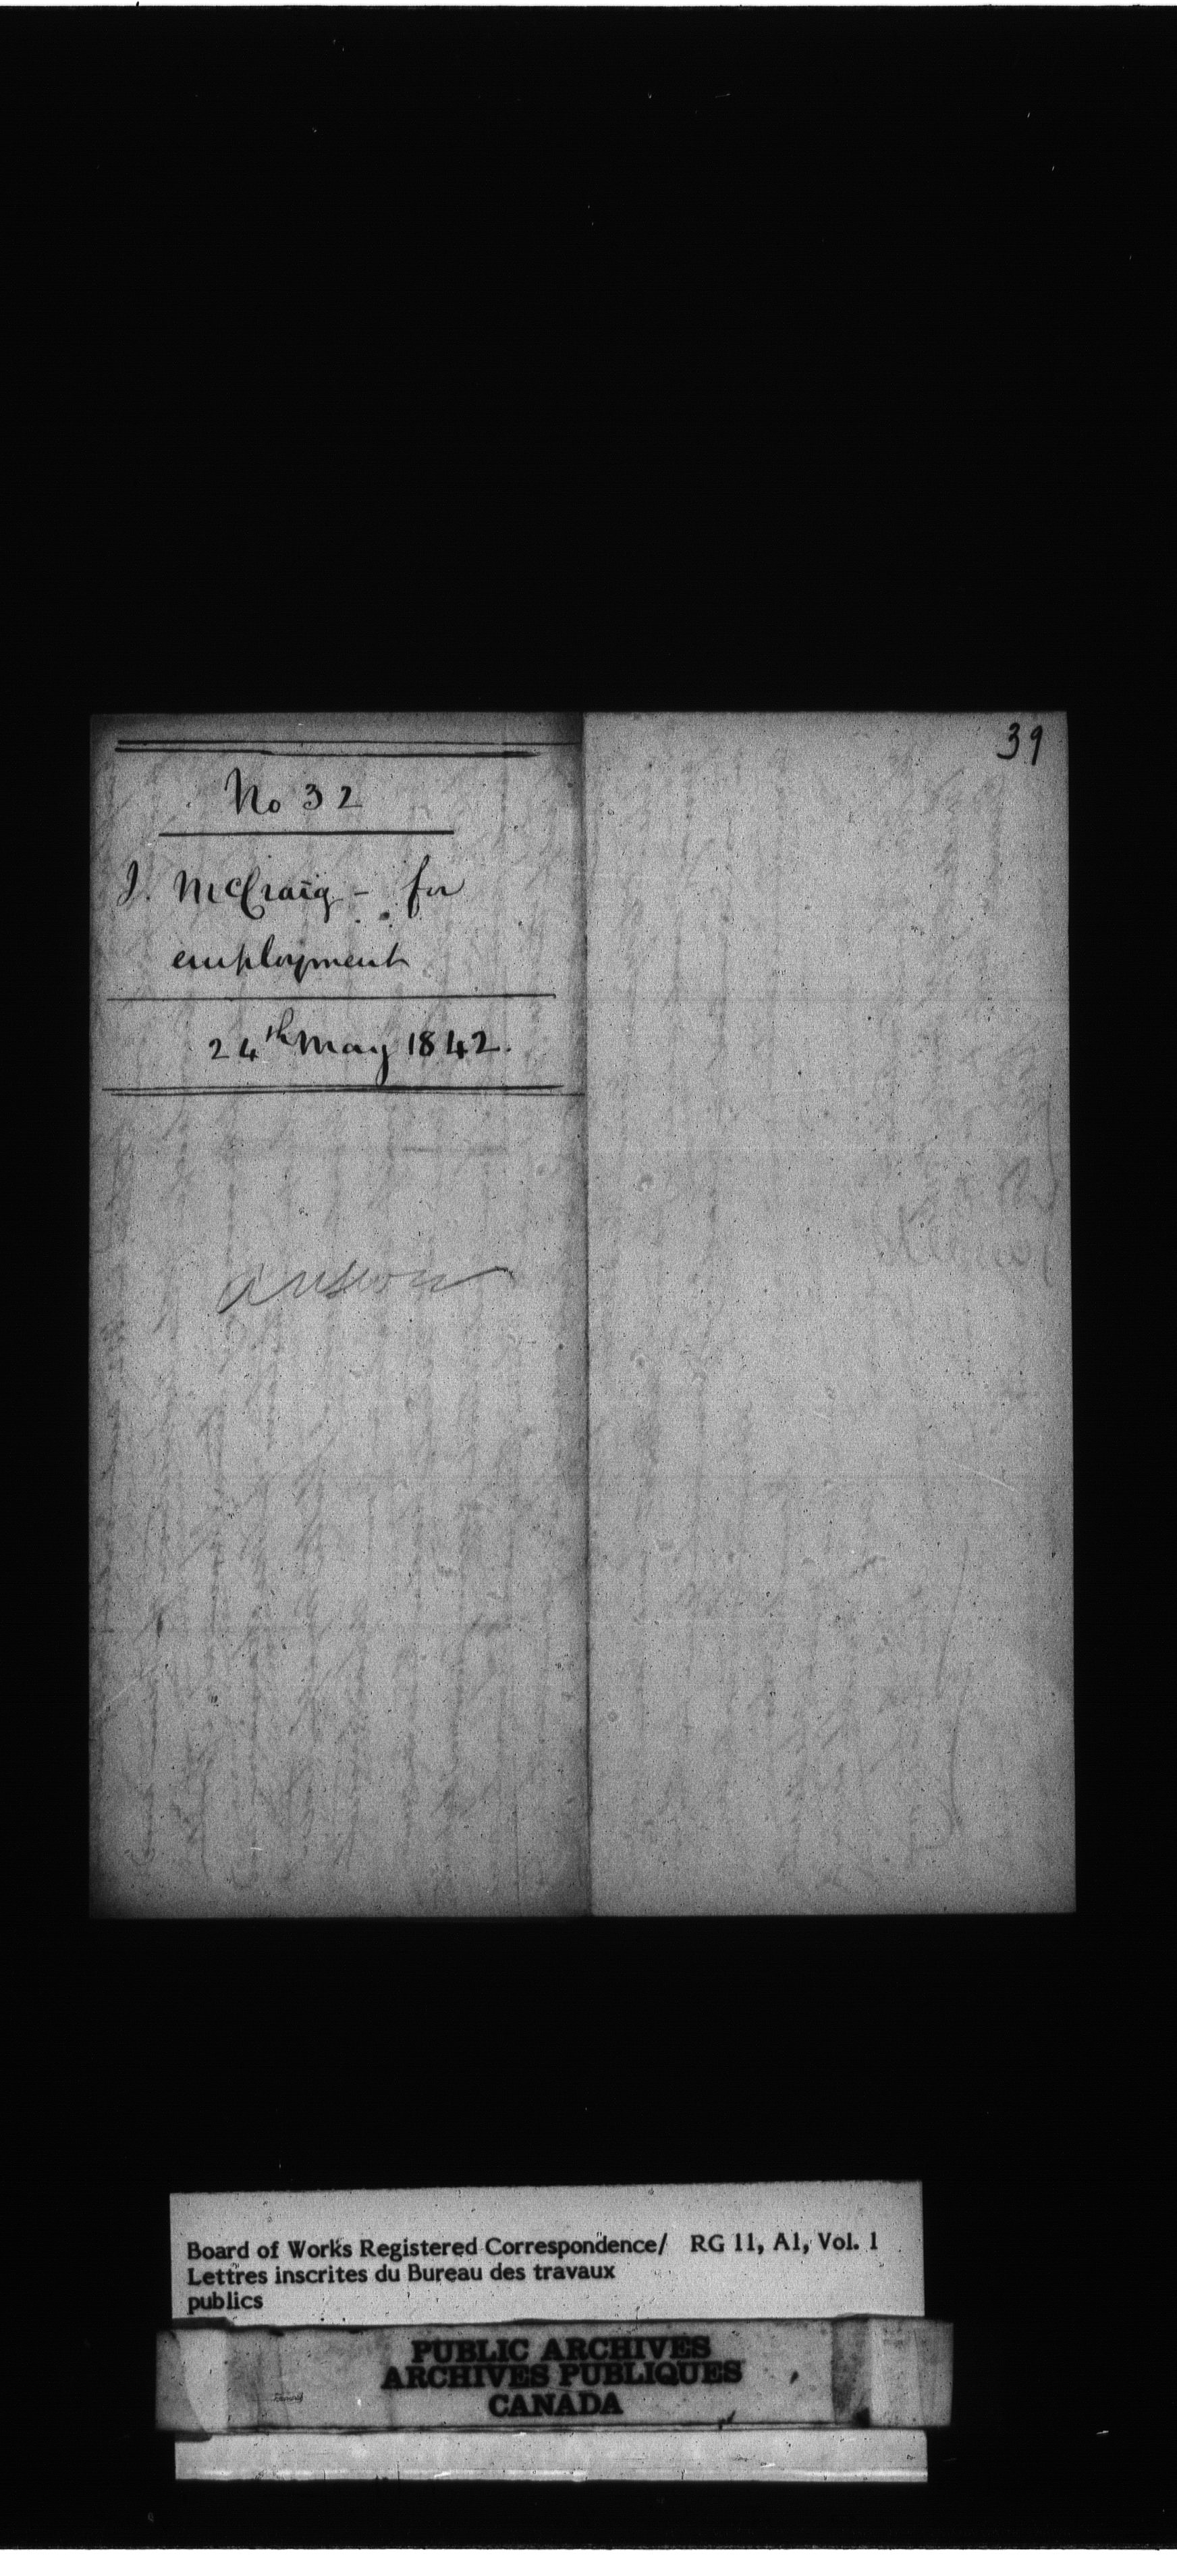 39
No 32
J. McCraig - for
employment
24th May 1842.
Board of Works Registered Correspondence/ RG 11, A1, Vol. 1
Lettres inscrites du Bureau des travaux
publics
PUBLIC ARCHIVES
ARCHIVES PUBLIQUES
CANADA